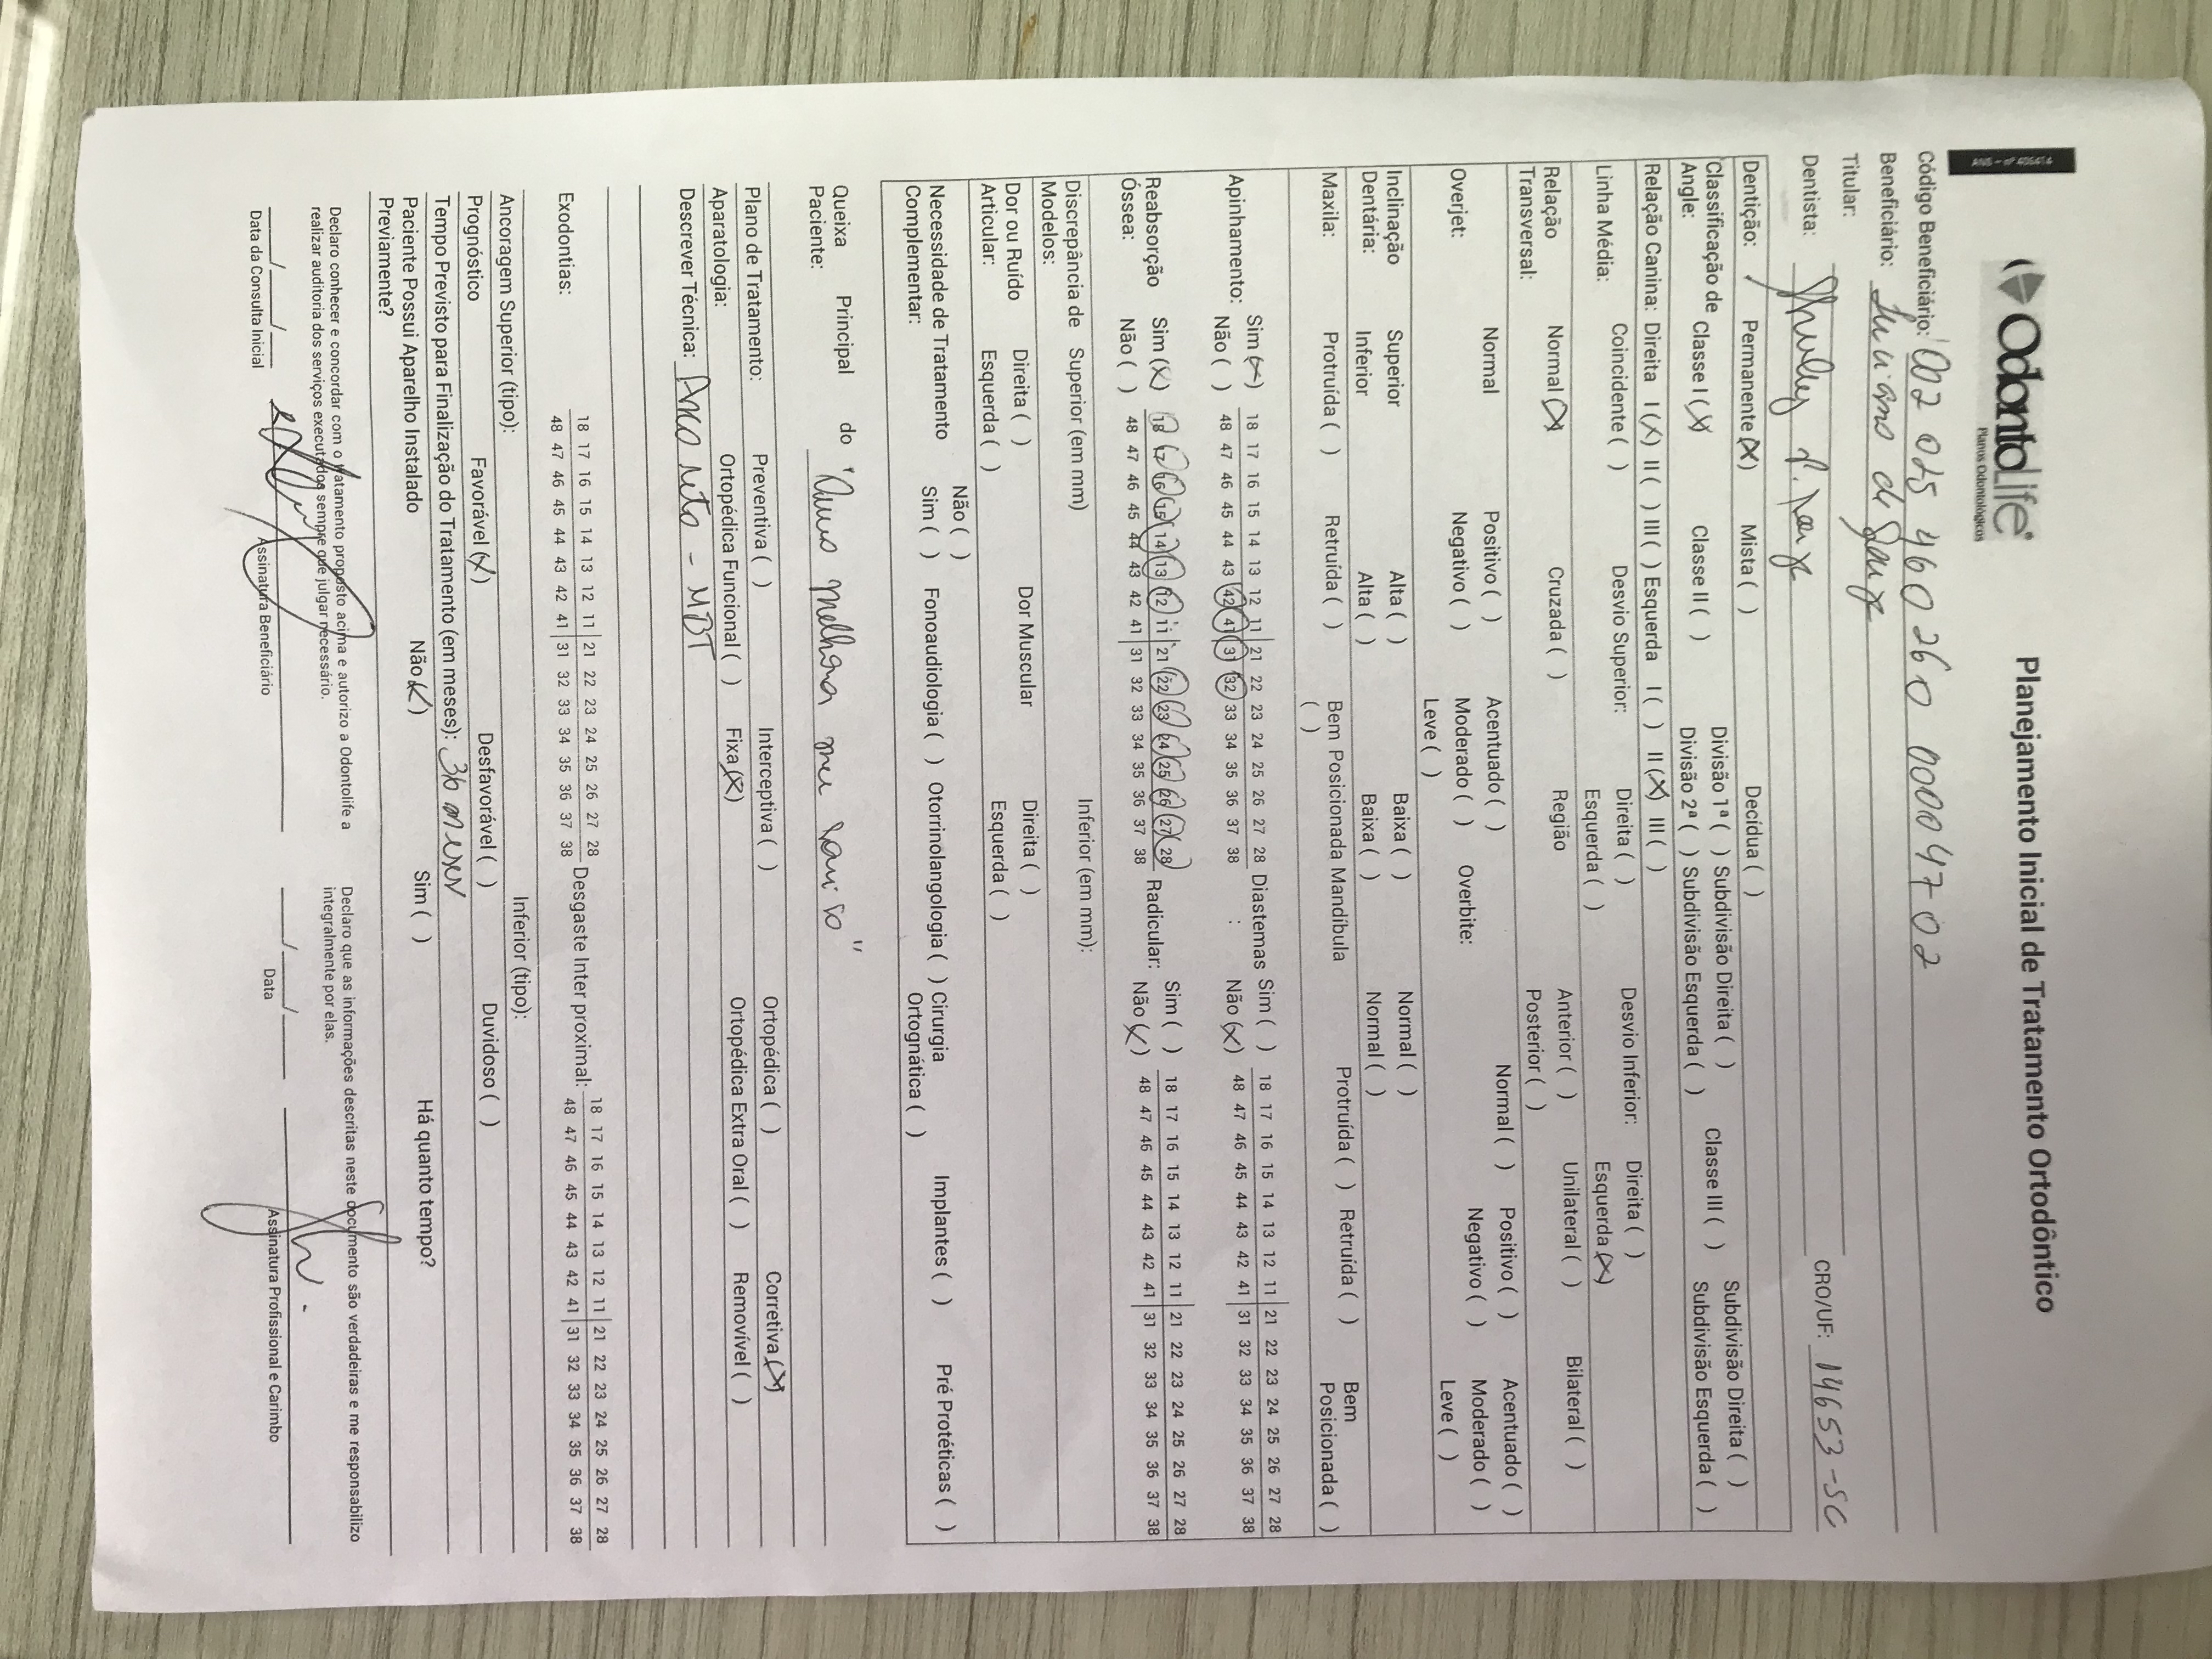 ANS - nº 406414
OdontoLife®
Planos Odontológicos
Planejamento Inicial de Tratamento Ortodôntico
Código Beneficiário: 002 025 460 260 0000 47 02
Beneficiário: Juliano de Souza
Titular:
Dentista: CRO/UF: 14653-SC
Dentição: Permanente (X) Mista ( ) Decídua ( )
Classificação de Angle: Classe I (X) Classe II ( ) Divisão 1ª ( ) Subdivisão Direita ( ) Classe III ( ) Subdivisão Direita ( )
Divisão 2ª ( ) Subdivisão Esquerda ( ) Subdivisão Esquerda ( )
Relação Canina: Direita I (X) II ( ) III ( ) Esquerda I ( ) II (X) III ( )
Linha Média: Coincidente ( ) Desvio Superior: Direita ( ) Desvio Inferior: Direita ( )
Esquerda ( ) Esquerda (X)
Relação Transversal: Normal (X) Cruzada ( ) Região Anterior ( ) Unilateral ( ) Bilateral ( )
Posterior ( )
Overjet: Normal Positivo ( ) Acentuado ( ) Overbite: Normal ( ) Positivo ( ) Acentuado ( )
Negativo ( ) Moderado ( ) Negativo ( ) Moderado ( )
Leve ( ) Leve ( )
Inclinação Superior Alta ( ) Baixa ( ) Normal ( )
Dentária: Inferior Alta ( ) Baixa ( ) Normal ( )
Maxila: Protruída ( ) Retruída ( ) Bem Posicionada ( ) Mandíbula Protruída ( ) Retruída ( ) Bem Posicionada ( )
Apinhamento: Sim (X) 18 17 16 15 14 13 12 11 21 22 23 24 25 26 27 28 Diastemas Sim ( ) 18 17 16 15 14 13 12 11 21 22 23 24 25 26 27 28
Não ( ) 48 47 46 45 44 43 42 41 31 32 33 34 35 36 37 38 : Não (X) 48 47 46 45 44 43 42 41 31 32 33 34 35 36 37 38
Reabsorção Sim (X) 18 17 16 15 14 13 12 11 21 22 23 24 25 26 27 28 Radicular: Sim ( ) 18 17 16 15 14 13 12 11 21 22 23 24 25 26 27 28
Óssea: Não ( ) 48 47 46 45 44 43 42 41 31 32 33 34 35 36 37 38 Não (X) 48 47 46 45 44 43 42 41 31 32 33 34 35 36 37 38
Discrepância de Superior (em mm) Inferior (em mm):
Modelos:
Dor ou Ruído Direita ( ) Dor Muscular Direita ( )
Articular: Esquerda ( ) Esquerda ( )
Necessidade de Tratamento Não ( )
Complementar: Sim ( ) Fonoaudiologia ( ) Otorrinolangologia ( ) Cirurgia Ortognática ( ) Implantes ( ) Pré Protéticas ( )
Queixa Principal do
Paciente: "Quero melhorar meu sorriso"
Plano de Tratamento: Preventiva ( ) Interceptiva ( ) Ortopédica ( ) Corretiva (X)
Aparatologia: Ortopédica Funcional ( ) Fixa (X) Ortopédica Extra Oral ( ) Removível ( )
Descrever Técnica: Arco reto - MBT
Exodontias: 18 17 16 15 14 13 12 11 21 22 23 24 25 26 27 28 Desgaste Inter proximal: 18 17 16 15 14 13 12 11 21 22 23 24 25 26 27 28
48 47 46 45 44 43 42 41 31 32 33 34 35 36 37 38 48 47 46 45 44 43 42 41 31 32 33 34 35 36 37 38
Ancoragem Superior (tipo): Inferior (tipo):
Prognóstico Favorável (X) Desfavorável ( ) Duvidoso ( )
Tempo Previsto para Finalização do Tratamento (em meses): 36 meses
Paciente Possui Aparelho Instalado Não (X) Sim ( ) Há quanto tempo?
Previamente?
Declaro conhecer e concordar com o tratamento proposto acima e autorizo a Odontolife a
realizar auditoria dos serviços executados sempre que julgar necessário.
Declaro que as informações descritas neste documento são verdadeiras e me responsabilizo
integralmente por elas.
___/___/___
Data da Consulta Inicial Assinatura Beneficiário
___/___/___
Data Assinatura Profissional e Carimbo